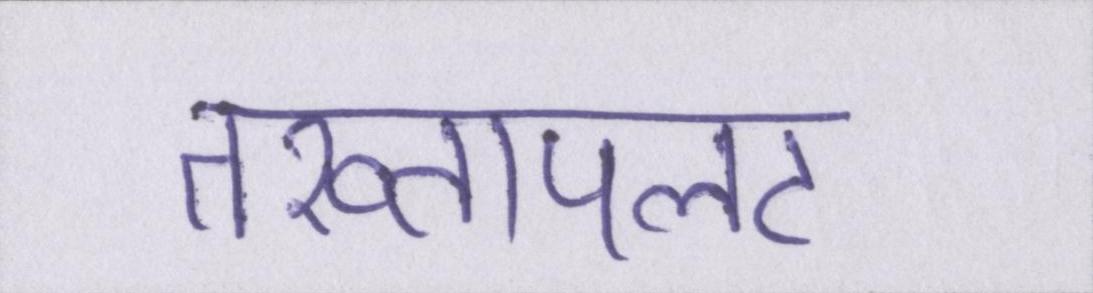 तख्तापलट